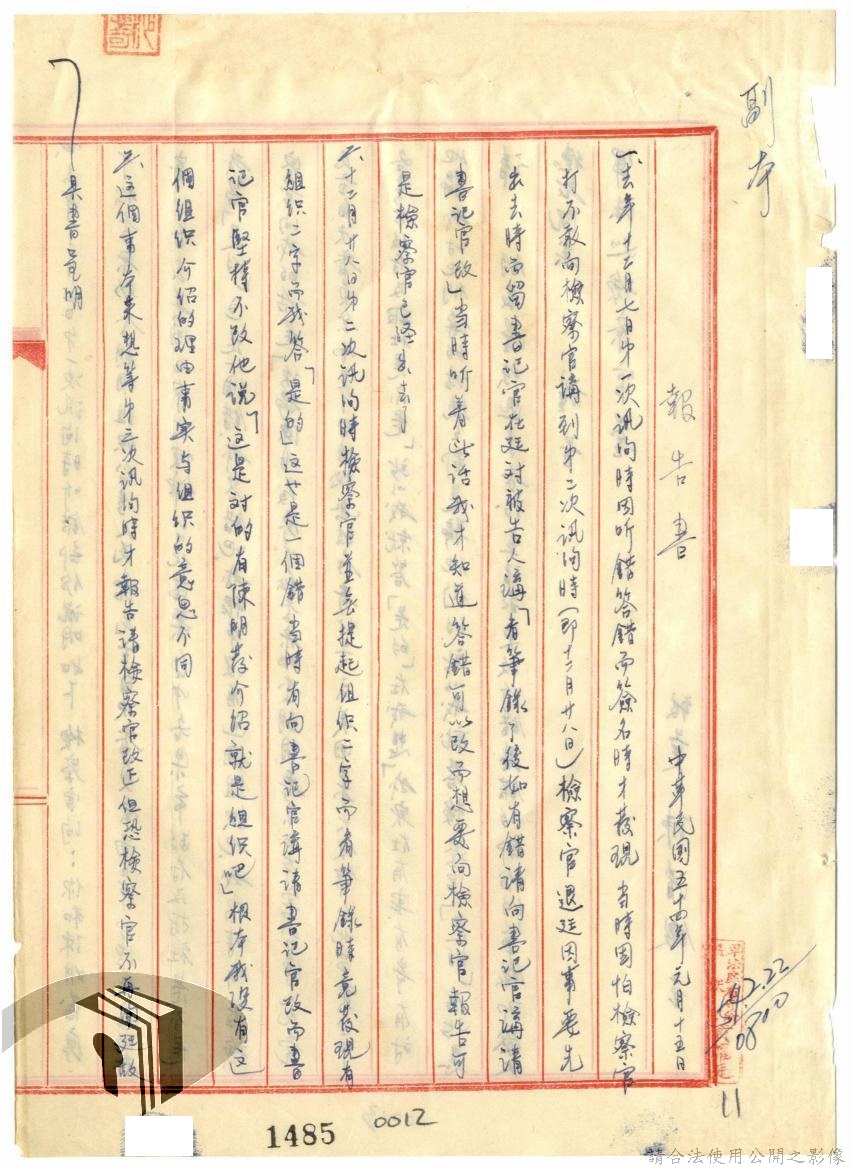 副本
報告書
中華民國五十四年元月十五日
一、去年十二月七日第一次訊问時因听錯答錯而簽名時才發現 当時因怕檢察官
打不敢向檢察官講到第二次訊问時(即十二月廿八日)檢察官退廷因事要先
出去時而留書記官在廷対被告人講「看筆錄了後如有錯請向書記官講請
書記官改」当時听着此話我才知道答錯可以改而想要向檢察官報告可
是檢察官已経出去了
二、十二月廿八日第二次訊问時檢察官並無提起组织二字而看筆錄時竟發現有
组织二字而我答「是的」这也是一個錯当時有向書記官講請書記官改而書
记官堅持不改他说「这是対的有陳明發介绍就是组织吧」根本我没有这
個组织介绍的理由事实与组织的意思不同
三、这個事本来想等第三次訊问時才報告請檢察官改正但恐檢察官不再開廷故
具書呈明
54.2.22
0810
11
1485
0012
請合法使用公開之影像